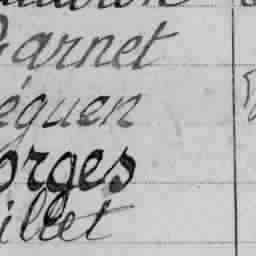 Garnet
éguen
orges
illet